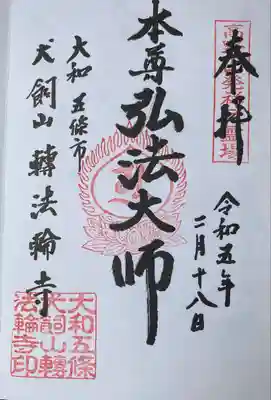 奉拝
令和五年
二月十八日
本尊弘法大師
大和五條市
犬飼山轉法輪寺
大和五條
犬飼山轉
法輪寺印